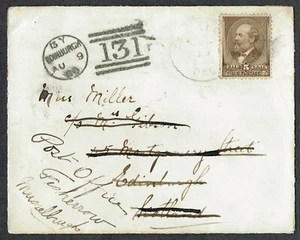 BY
EDINBURGH
AU 9
131
Mrs Miller
c/o Mrs
Montgomery Street
Edinburgh
Scotland
Post Office
Fisherrow
Musselburgh